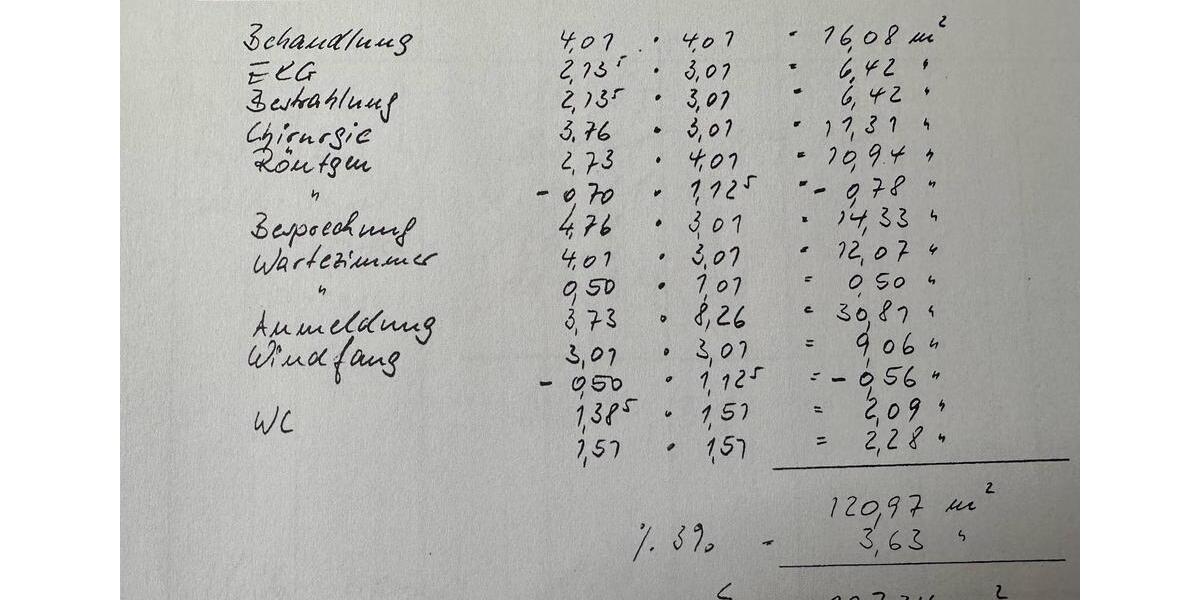 Behandlung 4,01 · 4,01 = 16,08 m²
EKG 2,13⁵ · 3,01 = 6,42 "
Bestrahlung 2,13⁵ · 3,01 = 6,42 "
Chirurgie 3,76 · 3,01 = 11,31 "
Röntgen 2,73 · 4,01 = 10,94 "
" - 0,70 · 1,12⁵ = - 0,78 "
Besprechung 4,76 · 3,01 = 14,33 "
Wartezimmer 4,01 · 3,01 = 12,07 "
" 0,50 · 1,01 = 0,50 "
Anmeldung 3,73 · 8,26 = 30,81 "
Windfang 3,01 · 3,01 = 9,06 "
- 0,50 · 1,12⁵ = - 0,56 "
WC 1,38⁵ · 1,51 = 2,09 "
1,51 · 1,51 = 2,28 "
120,97 m²
%. 3% - 3,63 "